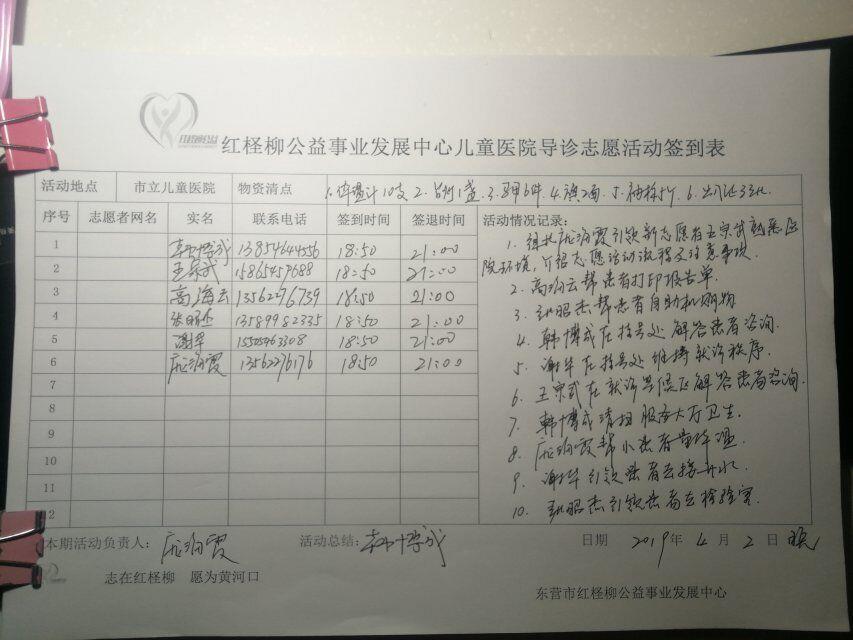 红柽柳公益事业发展中心儿童医院导诊志愿活动签到表
活动地点 市立儿童医院 物资清点 1.体温计10支 2. 1盏. 3.马甲6件 4.旗2面. 5. 6.出门证3张
序号 志愿者网名 实名 联系电话 签到时间 签退时间 活动情况记录:
1 韩博成 13854644556 18:50 21:00
2 王宗武 15865459688 18:50 21:00
3 高海云 13562296739 18:50 21:00
4 张昭杰 13589982335 18:50 21:00
5 谢华 15505463308 18:50 21:00
6 庞海霞 13562276176 18:50 21:00
7
8
9
10
11
2
1. 组长庞海霞引领新志愿者王宗武熟悉医
院环境,介绍志愿活动流程及注意事项
2. 高海云帮患者打印报告单
3. 张昭杰帮患者自助机购物
4. 韩博成在挂号处解答患者咨询.
5. 谢华在挂号处维持就诊秩序
6. 王宗武在就诊等候区解答患者咨询.
7. 韩博成清扫服务大厅卫生.
8. 庞海霞帮小患者量体温
9. 谢华引领患者去接开水
10. 张昭杰引领患者去检验室.
本期活动负责人: 庞海霞 活动总结: 韩博成 日期 2019年4月2日晚
志在红柽柳 愿为黄河口
东营市红柽柳公益事业发展中心